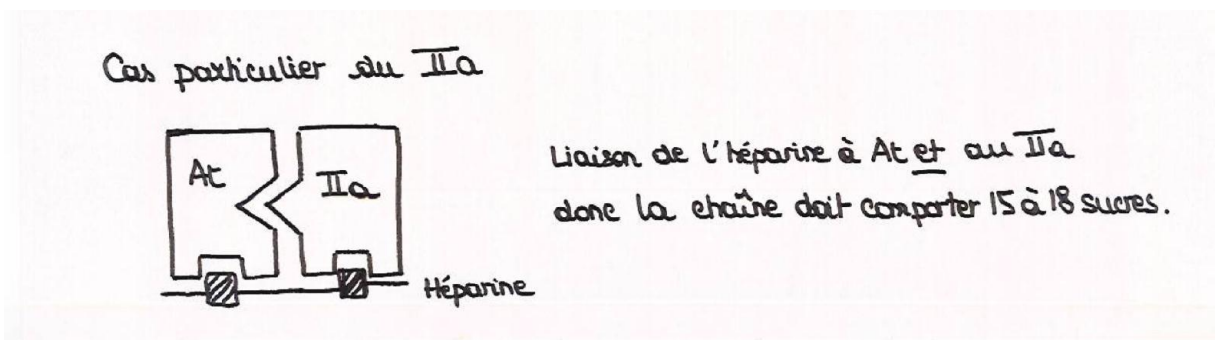 Cas particulier du IIa
At
IIa
Héparine
Liaison de l'héparine à At et au IIa
donc la chaîne doit comporter 15 à 18 sucres.